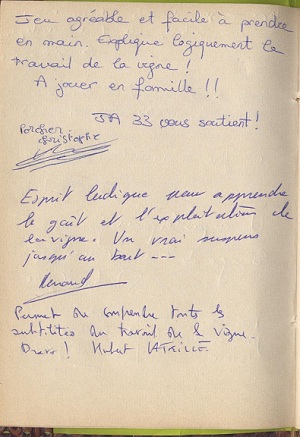 Jeu agréable et facile à prendre
en main. Explique logiquement le
travail de la vigne !
A jouer en famille !!
JA 33 vous soutient !
Porcher
Christophe
Esprit ludique pour apprendre
le goût et l'exploitation de
la vigne. Un vrai suspens
jusqu'au bout ---
Renaud
Permet de comprendre toutes les
subtilités du travail de la vigne.
Bravo ! Hubert